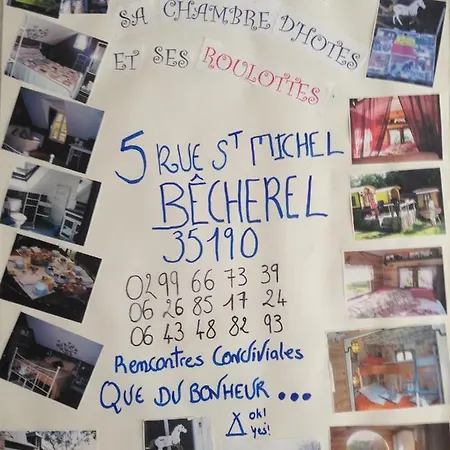 SA CHAMBRE D'HOTES
ET SES ROULOTTES
5 RUE ST MICHEL
BÊCHEREL
35190
02 99 66 73 39
06 26 85 17 24
06 43 48 82 93
Rencontres Conviviales
QUE DU BONHEUR...
ok!
yes!